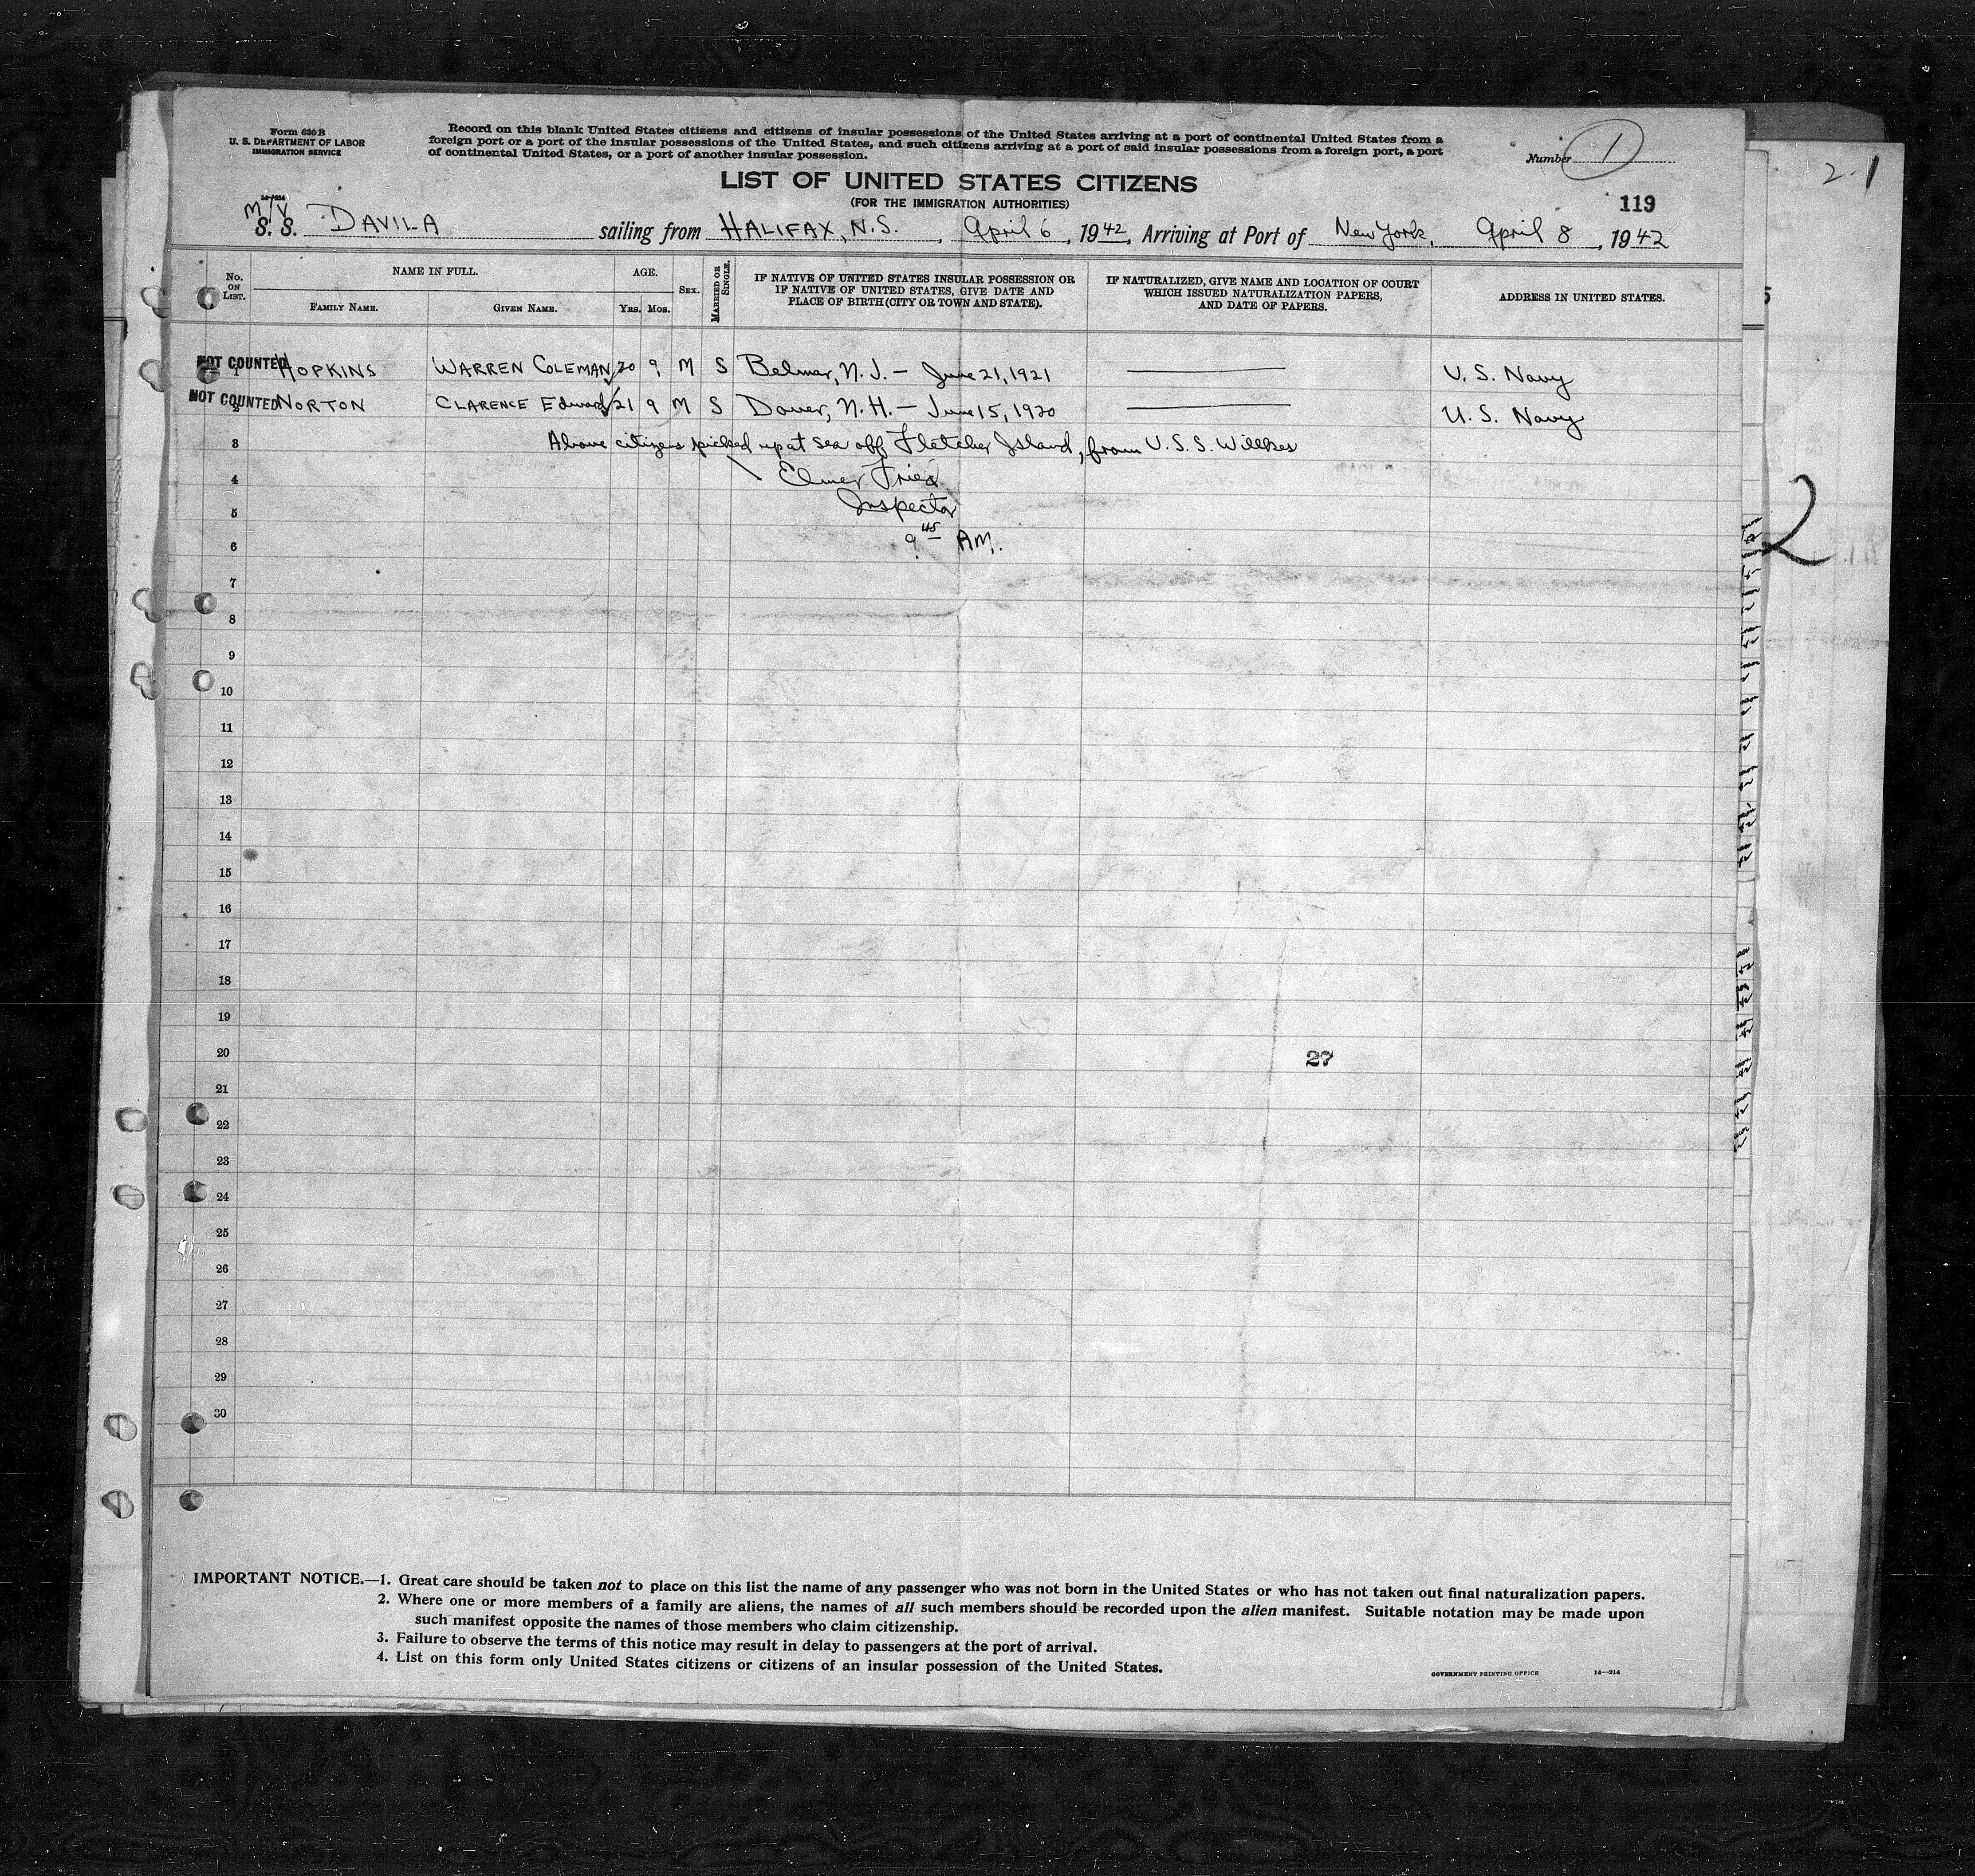 Form 630 B
U. S. DEPARTMENT OF LABOR
IMMIGRATION SERVICE
Record on this blank United States citizens and citizens of insular possessions of the United States arriving at a port of continental United States from a
foreign port or a port of the insular possessions of the United States, and such citizens arriving at a port of said insular possessions from a foreign port, a port
of continental United States, or a port of another insular possession.
Number 1
2-1
LIST OF UNITED STATES CITIZENS
(FOR THE IMMIGRATION AUTHORITIES)
119
14-214
M/V
S. S. DAVILA sailing from HALIFAX, N.S. , April 6 , 1942, Arriving at Port of New York, April 8 , 1942
No. ON LIST.
NAME IN FULL.
FAMILY NAME. GIVEN NAME.
AGE.
Yrs. Mos.
SEX.
MARRIED OR SINGLE.
IF NATIVE OF UNITED STATES INSULAR POSSESSION OR
IF NATIVE OF UNITED STATES, GIVE DATE AND
PLACE OF BIRTH (CITY OR TOWN AND STATE).
IF NATURALIZED, GIVE NAME AND LOCATION OF COURT
WHICH ISSUED NATURALIZATION PAPERS,
AND DATE OF PAPERS.
ADDRESS IN UNITED STATES.
NOT COUNTED 1 HOPKINS WARREN COLEMAN 20 9 M S Belmar, N. J. — June 21, 1921 U. S. Navy
NOT COUNTED 2 NORTON CLARENCE Edward 21 9 M S Dover, N. H. — June 15, 1920 U. S. Navy
3 Above citizens picked up at sea off Fletcher Island, from U.S.S. Willkes
4 Elmer Fried
5 Inspector
6 9 45 AM.
2
7
8
9
10
11
12
13
14
15
16
17
18
19
20
27
21
22
23
24
25
26
27
28
29
30
IMPORTANT NOTICE.—1. Great care should be taken not to place on this list the name of any passenger who was not born in the United States or who has not taken out final naturalization papers.
2. Where one or more members of a family are aliens, the names of all such members should be recorded upon the alien manifest. Suitable notation may be made upon
such manifest opposite the names of those members who claim citizenship.
3. Failure to observe the terms of this notice may result in delay to passengers at the port of arrival.
4. List on this form only United States citizens or citizens of an insular possession of the United States.
GOVERNMENT PRINTING OFFICE 14—214